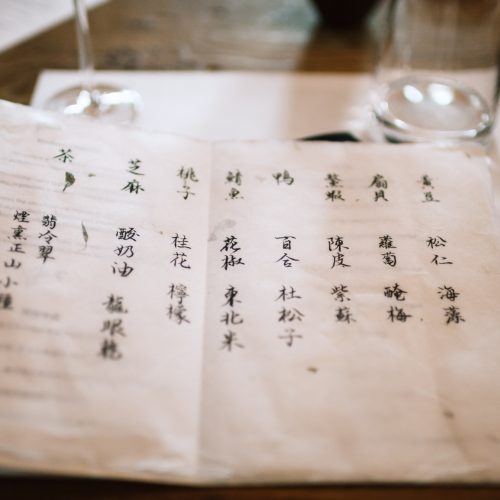 黃豆 松仁 海藻
扇貝 蘿蔔 醃梅
螯蝦 陳皮 紫蘇
鴨 百合 杜松子
鯖魚 花椒 東北米
桃子 桂花 檸檬
芝麻 酸奶油 龍眼乾
茶
翡冷翠
煙熏正山小種